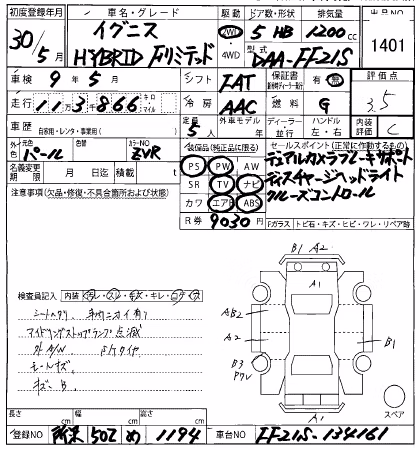 初度登録年月 車名・グレード 駆動 ドア数・形状 排気量 出品NO
30年5月 イグニス HYBRID Fリミテッド 2WD 4WD 5 HB 1200cc 1401
型式 DAA-FF21S
車検 9年5月 シフト FAT 保証書 有 無 評価点
走行 11万3千866 キロ・マイル 冷房 AAC 燃料 G 3.5
車歴 自家用・レンタ・事業用( ) 定員 5人 外車モデル年 ディーラー・並行 ハンドル 左・右 内装評価 C
外色 元色 パール 色替 カラーNO ZVR 装備品(純正品に限る) セールスポイント(正常に作動するもの)
名義変更期限 月 日迄 積載 t PS PW AW デュアルカメラブレーキサポート
注意事項(欠品・修復・不具合箇所および状態) SR TV ナビ ディスチャージヘッドライト
カワ エアB ABS クルーズコントロール
R券 9030円 Fガラス・トビ石・キズ・ヒビ・ワレ・リペア跡
検査員記入 内装
シートヘタリ
アイドリングストップランプ点滅
キズ B
B1 A2
A1
AB2
A2 B1
B3
A1
スペア
長さ cm 幅 cm 高さ cm
登録NO 所沢 502 め 1194 車台NO FF21S-134161